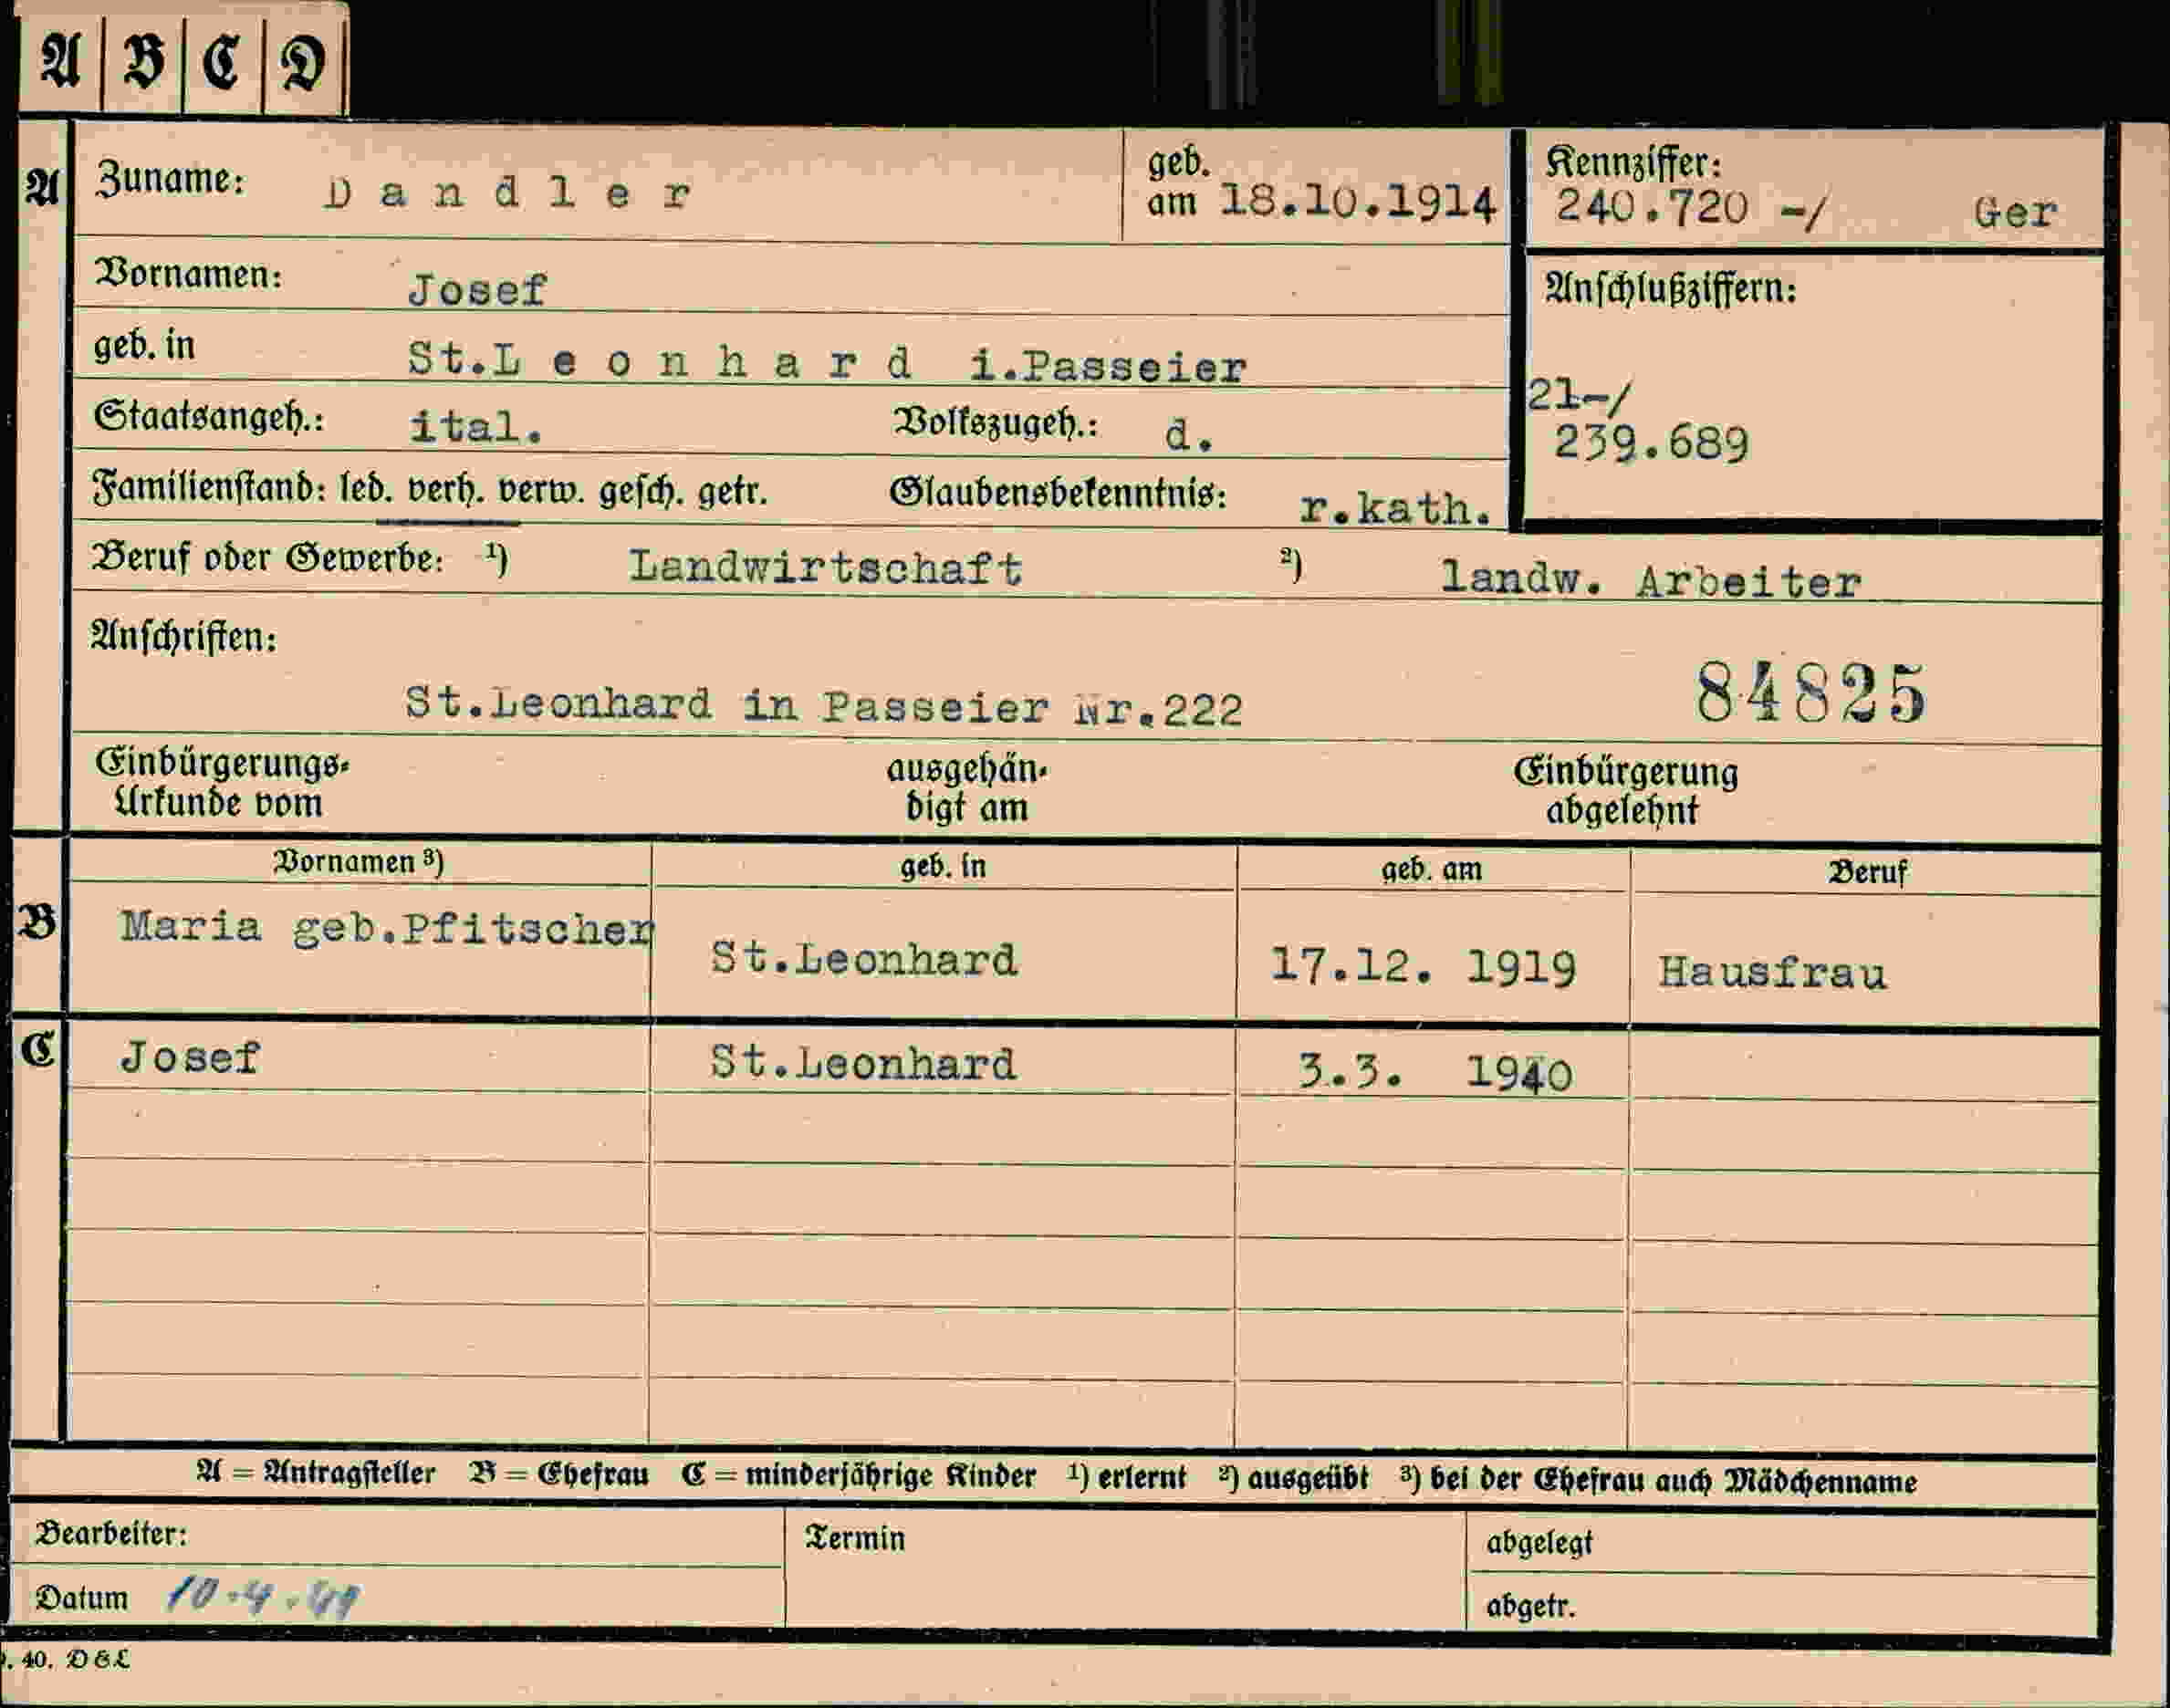 A B C D
A Zuname: D a n d l e r geb. am 18.10.1914 Kennziffer: 240.720 -/ Ger
Vornamen: Josef
Anschlußziffern:
geb. in St.L e o n h a r d i.Passeier
21-/
Staatsangeh.: ital. Volkszugeh.: d.
239.689
Familienstand: led. verh. verw. gesch. getr. Glaubensbekenntnis: r.kath.
Beruf oder Gewerbe: ¹) Landwirtschaft ²) landw. Arbeiter
Anschriften:
St.Leonhard in Passeier Nr.222 84825
Einbürgerungs- ausgehän- Einbürgerung
Urkunde vom digt am abgelehnt
Vornamen ³) geb. in geb. am Beruf
B Maria geb.Pfitscher St.Leonhard 17.12. 1919 Hausfrau
C Josef St.Leonhard 3.3. 1940
A = Antragsteller B = Ehefrau C = minderjährige Kinder ¹) erlernt ²) ausgeübt ³) bei der Ehefrau auch Mädchenname
Bearbeiter: Termin abgelegt
Datum 10.4. abgetr.
. 40. D&L